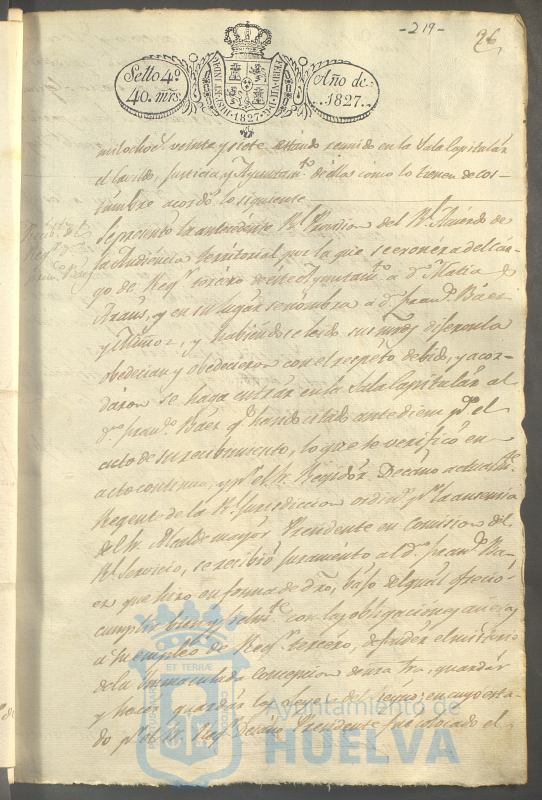 -219-
26
Sello 4º
40. mrs.
HISPAN. ET IND. REX
1827
Año de
1827.
mil ochoc.s veinte y siete estando reunido en la Sala Capitular
el Cavildo, Justicia, y Ayuntam.to de ella como lo tienen de cos-
tumbre acordó lo siguiente
Se presentó la antecedente Rl. Provision del Rl. Acuerdo de
la Audiencia territorial por la que se exonera del car-
go de Reg.r tercero de este Ayuntam.to a Dn. Matia de
Araus, y en su lugar se nombra a Dn. Fran.co Báez
y habiendose leido sus mrds. dijeron la
obedecian y obedecieron con el respeto debido, y acor-
daron se haga entrar en la Sala Capitular al
Dn. Fran.co Báez q.e ha sido citado ante diem p.a el
acto de su recibimiento, lo que se verificó en
acto continuo, y p.r el Sr. Regidor Decano actual
Regente de la Rl. Jurisdiccion ordin.a p.r la ausencia
del Sr. Alcalde mayor Presidente en Comision del
Rl. Servicio, se recibió juramento al Dn. Fran.co Bá-
ez que hizo en forma de dro, bajo del qual ofreció
cumplir bien y fielm.te con las obligaciones anejas
a su empleo de Reg.r tercero, defender el misterio
de la Inmaculada Concepcion de nra. Sra., guardar
y hacer guardar las leyes del reyno: en cuyo esta-
do p.r el Sr. Reg.r Decano Presidente fue colocado el
ET TERRÆ
Ayuntamiento de
HUELVA